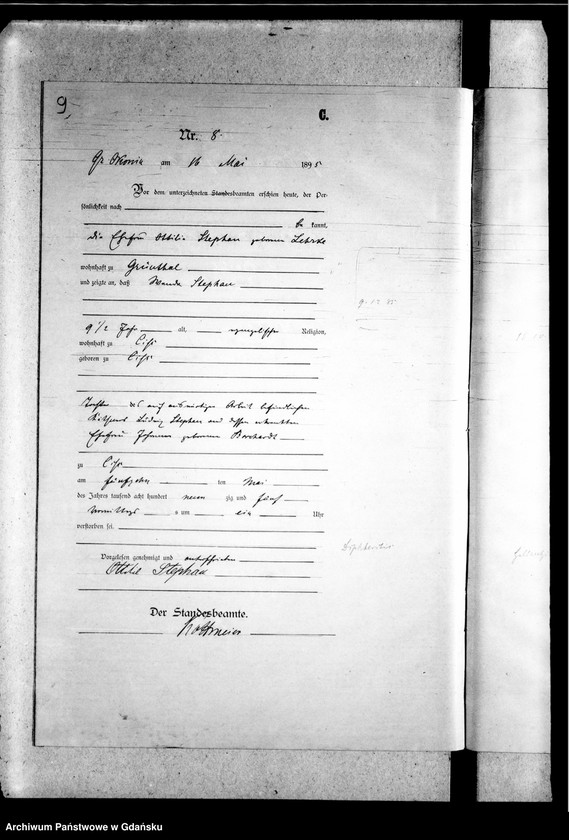 9,
C.
Nr. 8.
Gr. Okonin am 16 Mai 1895
Vor dem unterzeichneten Standesbeamten erschien heute, der Per-
sönlichkeit nach
be kannt,
die Ehefrau Ottilie Stephan geborene Lehrke
wohnhaft zu Grünthal
und zeigte an, daß Wanda Stephan
9 1/2 Jahr alt, evangelischer Religion,
wohnhaft zu
geboren zu
Tochter des auf auswärtiger Arbeit befindlichen
Ludwig Stephan und dessen
Ehefrau Johanna geborenen Borchardt
zu
am fünfzehn ten Mai
des Jahres tausend acht hundert neun zig und fünf
Vormittags um ein Uhr
verstorben sei.
Vorgelesen, genehmigt und unterschrieben
Ottilie Stephan
Der Standesbeamte.
Archiwum Państwowe w Gdańsku